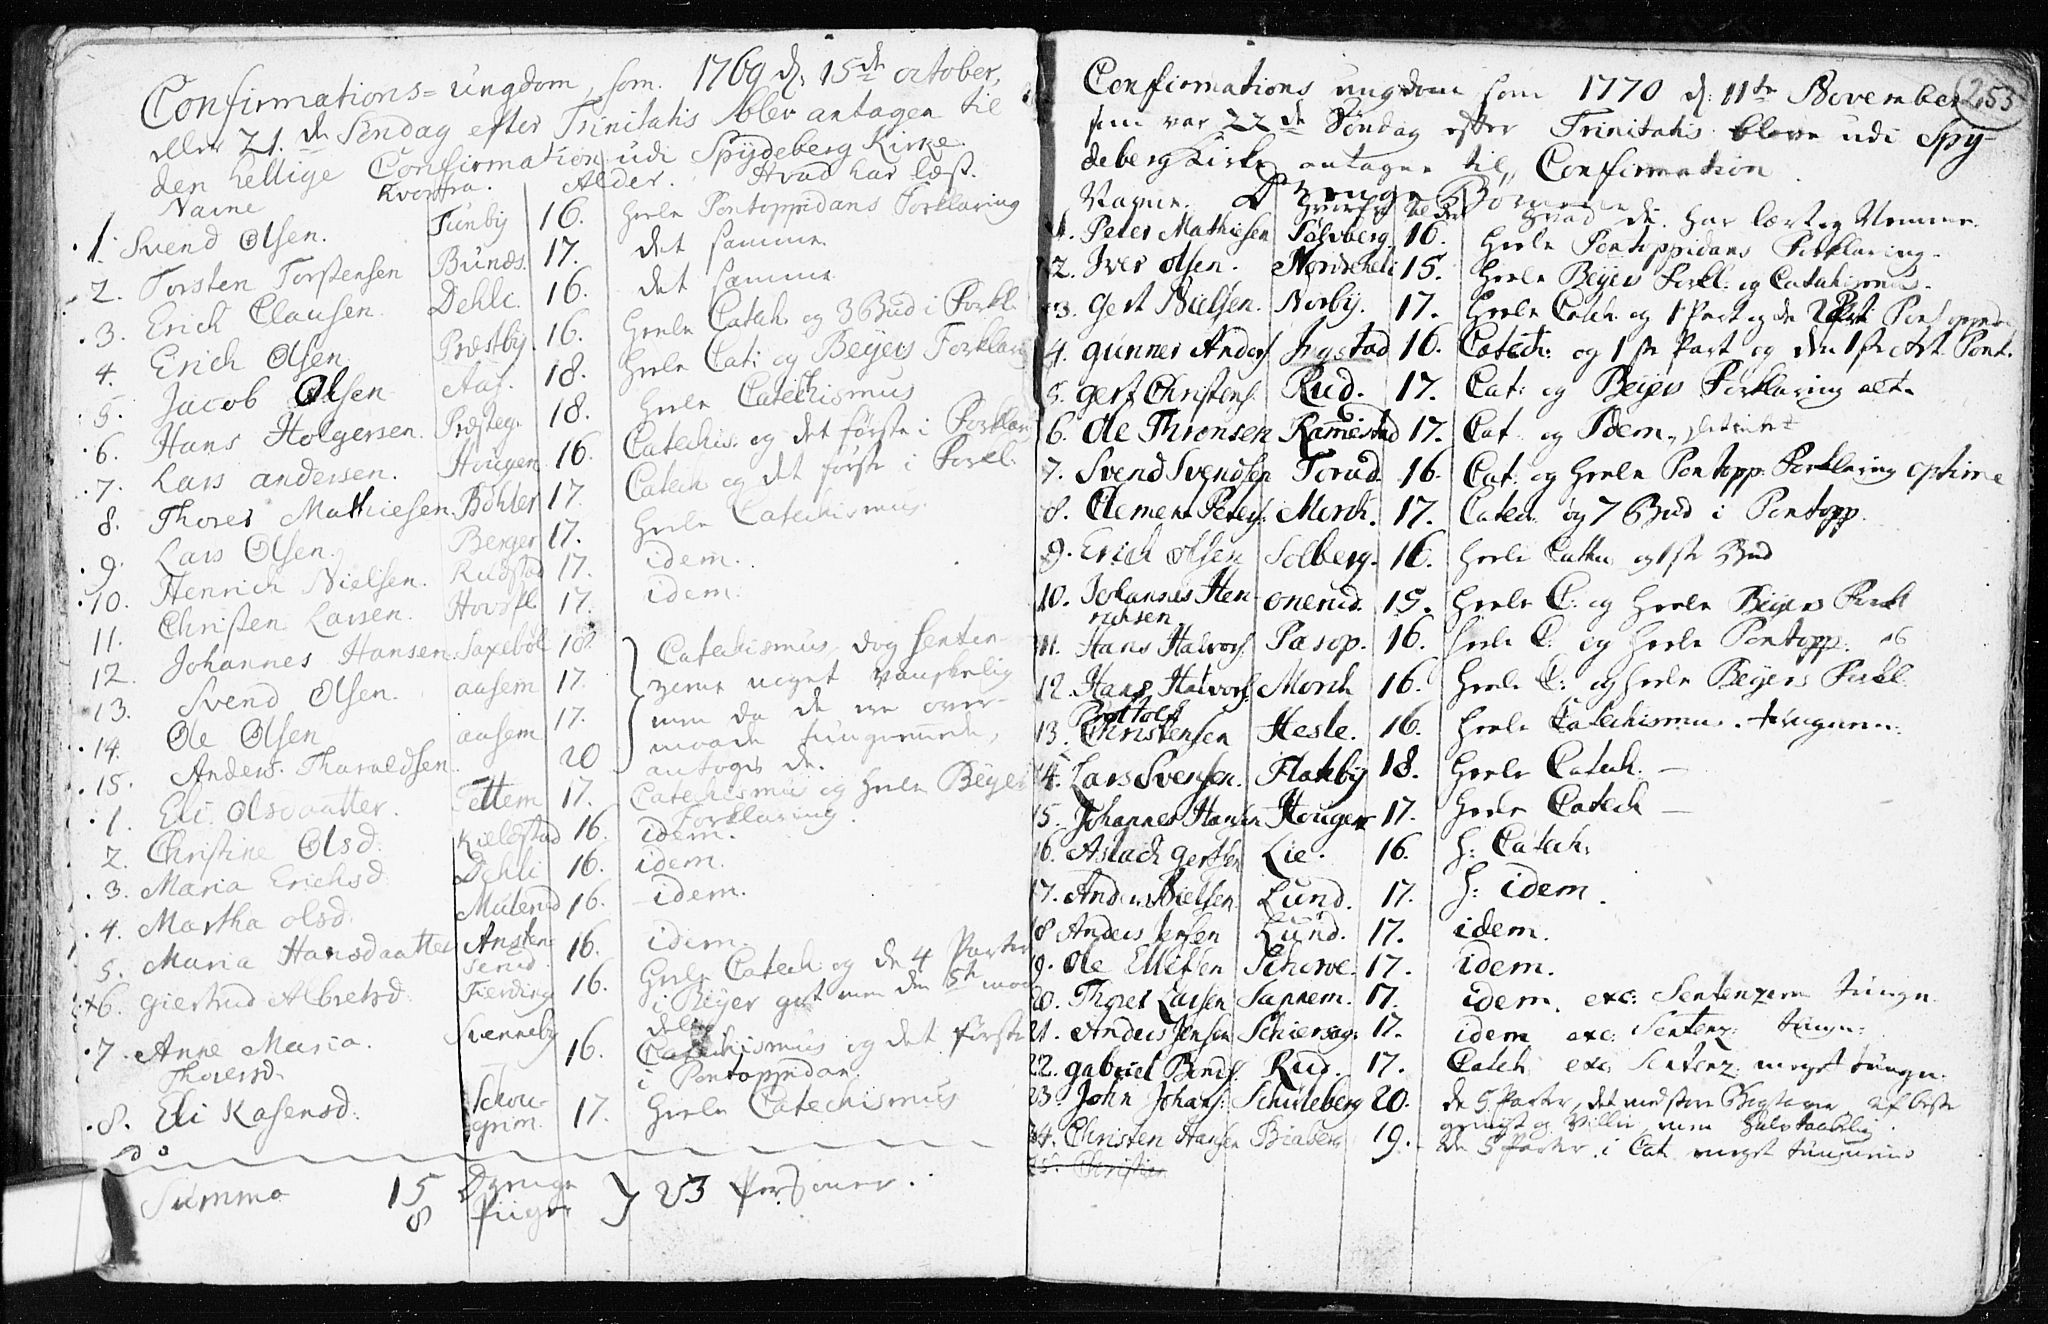 Confirmations=ungdom, som. 1769 d: 15de october,
eller 21.de Søndag efter Trinitatis blev antagen til
den hellige Confirmation udi Spydeberg Kirke.
Navne Hvorfra. Alder. Hvad har læst.
1. Svend Olsen. Tünby 16. heele Pontoppidans Forklaring
2. Torsten Torstensen Bünds. 17. det samme.
3. Erich Clausen. Dehli. 16. det samme
4. Erich Olsen. Præstby. 16. heele Catech. og 3 Bud i Forkl.
5. Jacob Olsen Aas. 18. heele Cat: og Beyers Forklaring
6. Hans Holgersen. Præsteg. 18. heele Catechismus
7. Lars andersen. Hougen 16. Catechis: og det første i Forklar
8. Thores Mathiesen. Bøhler 17. Catech og det første i Forkl.
9. Lars Olsen. Berger 17. heele Catechismus.
10. Henrich Nielsen. Rudstad 17. idem.
11. Christen Larsen. 17. idem.
12. Johannes Hansen. Saxebøl 18. Catechismus, dog senten-
13. Svend Olsen. aasem 17. zerne meget vanskelig
14. Ole Olsen aasem 17. men da de ere over-
maade tungnemede,
15. Anders Tharaldsen 20 antoges de.
1. Eli Olsdaatter. Tettem 17. Catechismus og heele Beyers
Forklaring.
2. Christine Olsd: Kielstad 16. idem.
3. Maria Erichsd Dehli 16. idem.
4. Martha olsd: Mulerud 16. idem.
5. Maria Hansdaatter Ansten-
serud. 16. idem.
6. Giertrud Albretsd Fierding 16. heele Catech: og de 4 Parter
i Beyer gott men den 5te
7. Anne Maria. Svenneby 16. Catechismus og det første
Thoresd. i Pontoppidan.
8. Eli Kasensd. Schou-
grim. 17. heele Catechismus
Summa 15 Drenge
8 Piiger } 23 Personer.
253
Confirmations ungdom som 1770 d: 11te November
som var 22de Søndag efter Trinitatis bleve udi Spy-
deberg Kirke antagne til Confirmation
Drenge Børn
Navne. Hvorfra Alder Hvad de har lært og Nemme.
1. Peter Mathiesen Solberg. 16. heele Pontoppidans Forklaring.
2. Iver Olsen. Nordreheli 15. heele Beyers Forkl. og Catechismus.
3. Gert Nielsen. Norby. 17. heele Catech. og 1 Part og de
4. Gunner Anders. Ingstad 16. Catech: og 1ste Part og den 1ste Art. Pont.
5. Gert Christens. Rud. 17. Cat: og Beyers Forklaring alt.
6. Ole Thronsen Ramestad 17. Cat og Idem.
7. Svend Svendsen Torud 16. Cat: og heele Pontopp: Forklaring optime
8. Clement Peters. Morch. 17. Catech: og 7 Bud i Pontopp.
9. Erich Olsen Solberg. 16. heele Catech og 1ste Bud
10. Johannes Hen- onerud. 15. heele C: og heele Beyers Forkl
richsen
11. Hans Halvors. Pasop. 16. heele C: og heele Pontopp.
12. Hans Halvors. Morch 16. heele C: og heele Beyers Forkl.
13. Christensen Hesle. 16. heele Catechismu.
14. Lars Svensen. Flateby 18. heele Catech. —
15. Johannes Hansen Hougen 17. heele Catech —
16. Aslach Gertsen Lie. 16. h: Catech:
17. Anders Nielsen Lund. 17. h: idem.
18. Anders Jensen Lund. 17. idem.
19. Ole Ellefsen Scherve. 17. idem.
20. Thores Larsen Sannem. 17. idem. exc: Sentenzerne tungn.
21. Anders Jensen Schiersag. 17. idem exc: Sentenz: tungn:
22. Gabriel Bends. Rud. 17. Catech: exc: Sentenz: meget tungn.
23. John Johans: Schuleberg 20. de 5 Parter, det meste Bogstavene af beste
24. Christen Hansen Biaberg 19. de 5 Parter i Cat. meget tungnem
25. Christen